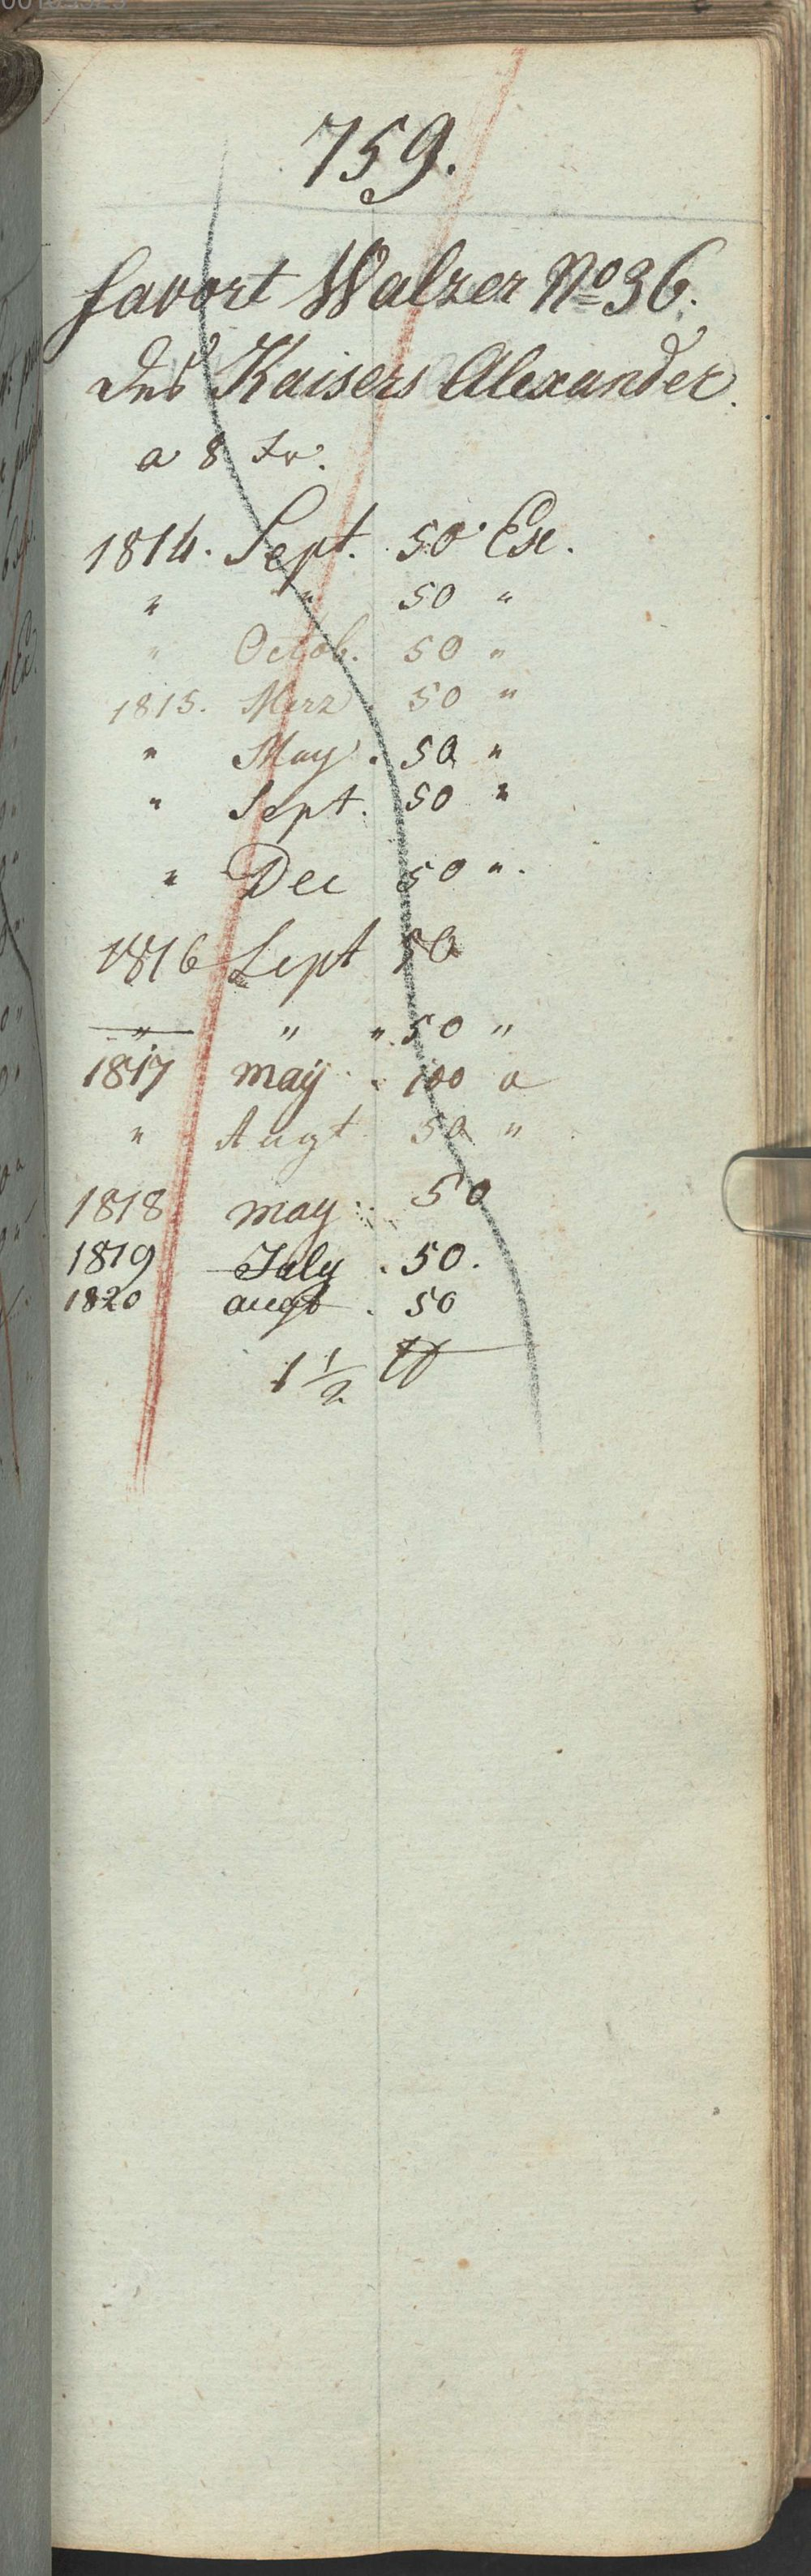 759.
favort Walzer No 36.
des Kaisers Alexander.
a 8 Xr.
1814. Sept. 50 Ex.
" " 50 "
" Octob. 50 "
1815. Merz 50 "
" May . 50 "
" Sept. 50 "
" Dec 50 ".
1816 Sept 50
" " " 50 "
1817 may . 100 a
" Augt 50 "
1818 may . 50
1819 July . 50.
1820 augt . 50
1 1/2